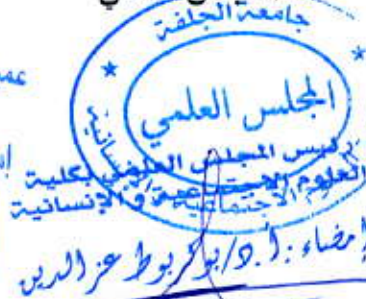 جامعة الجلفة
المجلس العلمي
رئيس المجلس العلمي بكلية
العلوم الاجتماعية و الإنسانية
إمضاء: أ.د/بوكربوط عز الدين